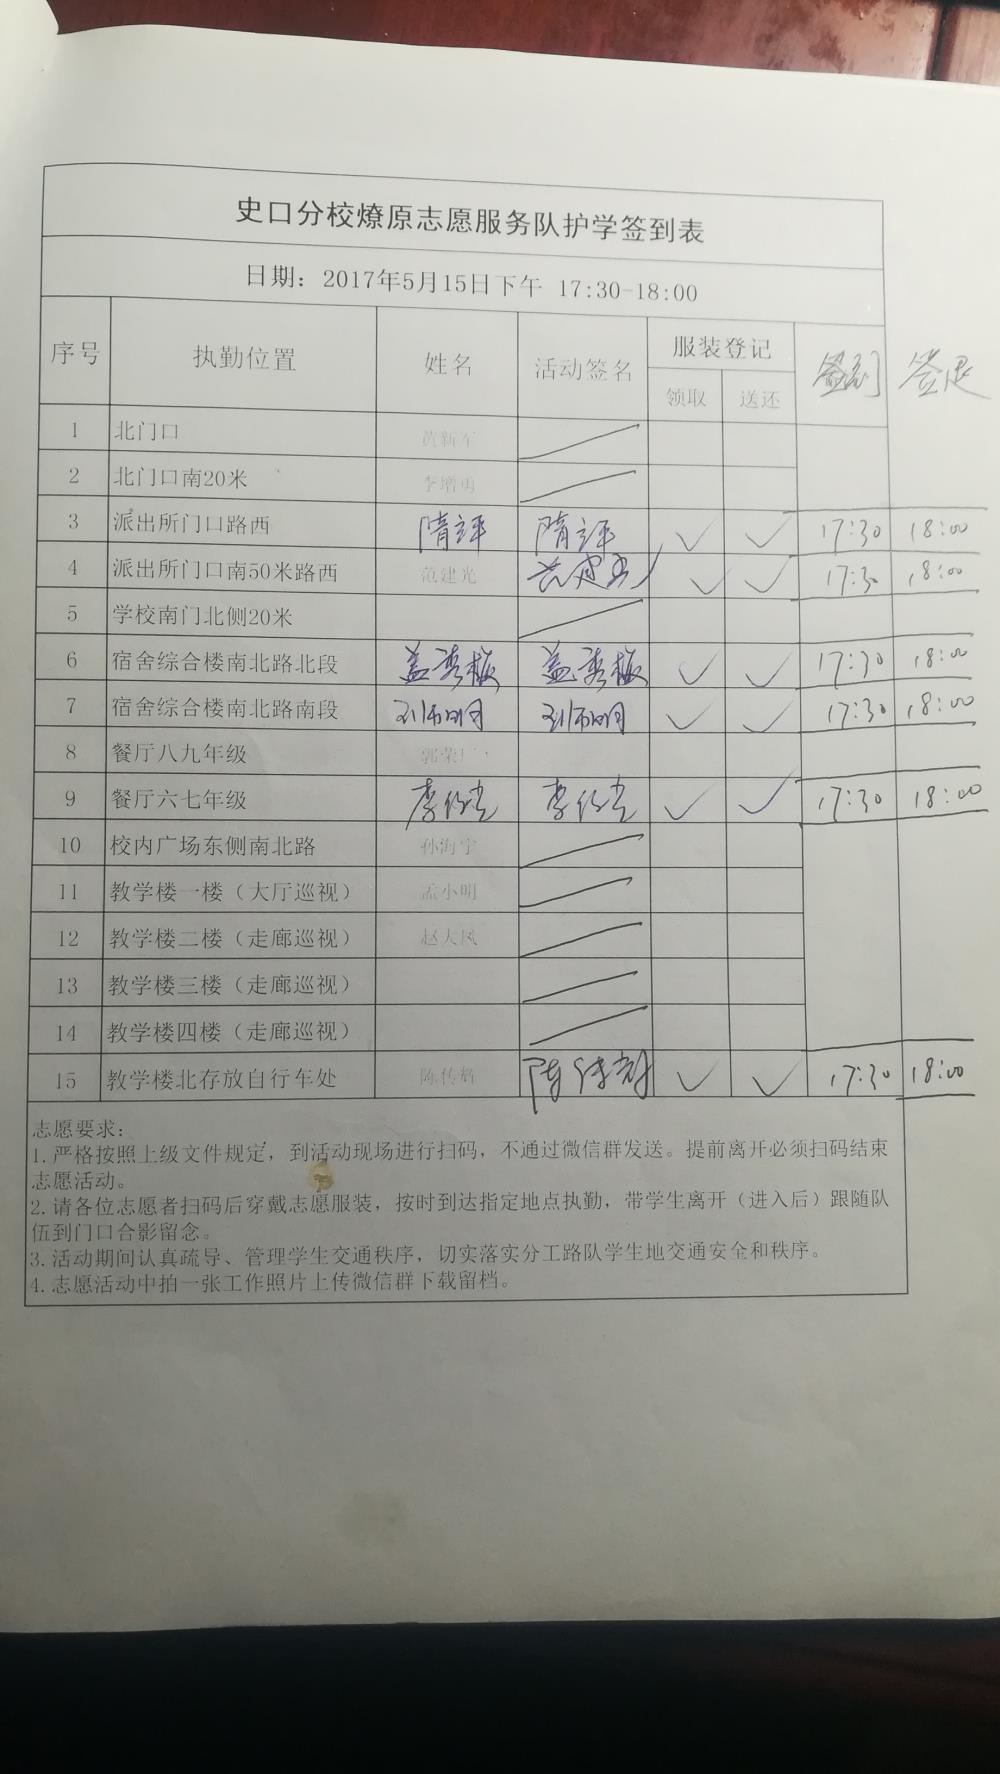 史口分校燎原志愿服务队护学签到表
日期：2017年5月15日下午 17:30-18:00
序号 执勤位置 姓名 活动签名 服装登记 签到 签退
领取 送还
1 北门口 黄新军
2 北门口南20米 李增勇
3 派出所门口路西 隋立平 隋立平 ✓ ✓ 17:30 18:00
4 派出所门口南50米路西 范建光 ✓ ✓ 17:30 18:00
5 学校南门北侧20米
6 宿舍综合楼南北路北段 盖秀梅 盖秀梅 ✓ ✓ 17:30 18:00
7 宿舍综合楼南北路南段 ✓ ✓ 17:30 18:00
8 餐厅八九年级 郭荣
9 餐厅六七年级 ✓ ✓ 17:30 18:00
10 校内广场东侧南北路 孙海宁
11 教学楼一楼（大厅巡视） 孟小明
12 教学楼二楼（走廊巡视） 赵大凤
13 教学楼三楼（走廊巡视）
14 教学楼四楼（走廊巡视）
15 教学楼北存放自行车处 ✓ ✓ 17:30 18:00
志愿要求：
1.严格按照上级文件规定，到活动现场进行扫码，不通过微信群发送。提前离开必须扫码结束
志愿活动。
2.请各位志愿者扫码后穿戴志愿服装，按时到达指定地点执勤，带学生离开（进入后）跟随队
伍到门口合影留念。
3.活动期间认真疏导、管理学生交通秩序，切实落实分工路队学生地交通安全和秩序。
4.志愿活动中拍一张工作照片上传微信群下载留档。